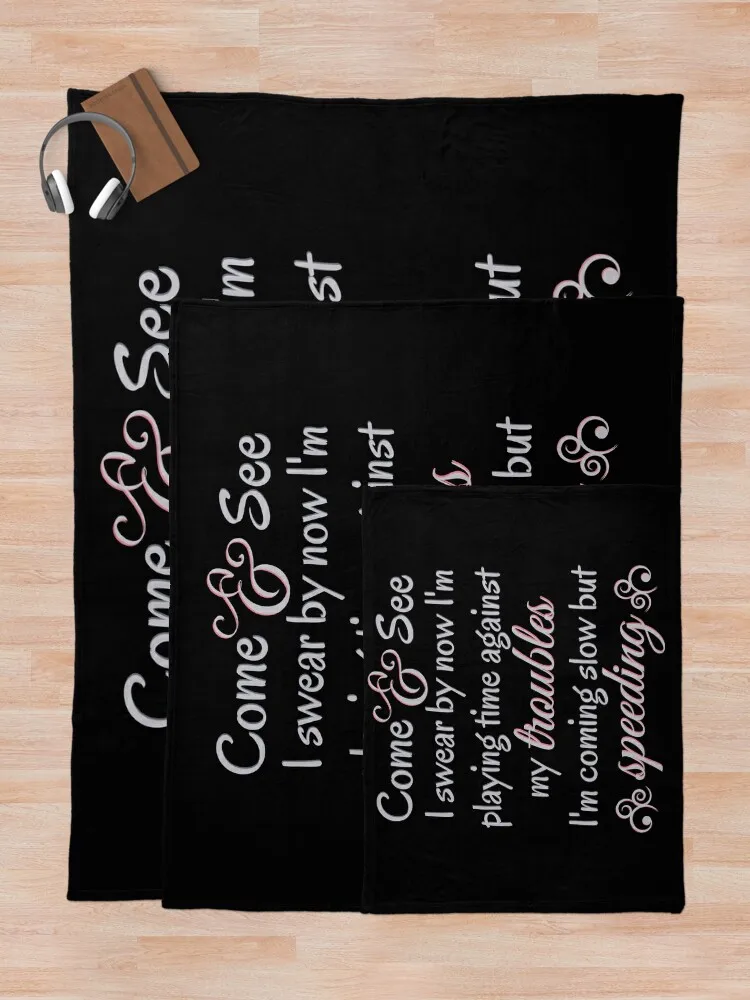 Come & See
m
st
ut
Come & See
I swear by now I'm
inst
s
but
Come & See
I swear by now I'm
playing time against
my troubles
I'm coming slow but
speeding